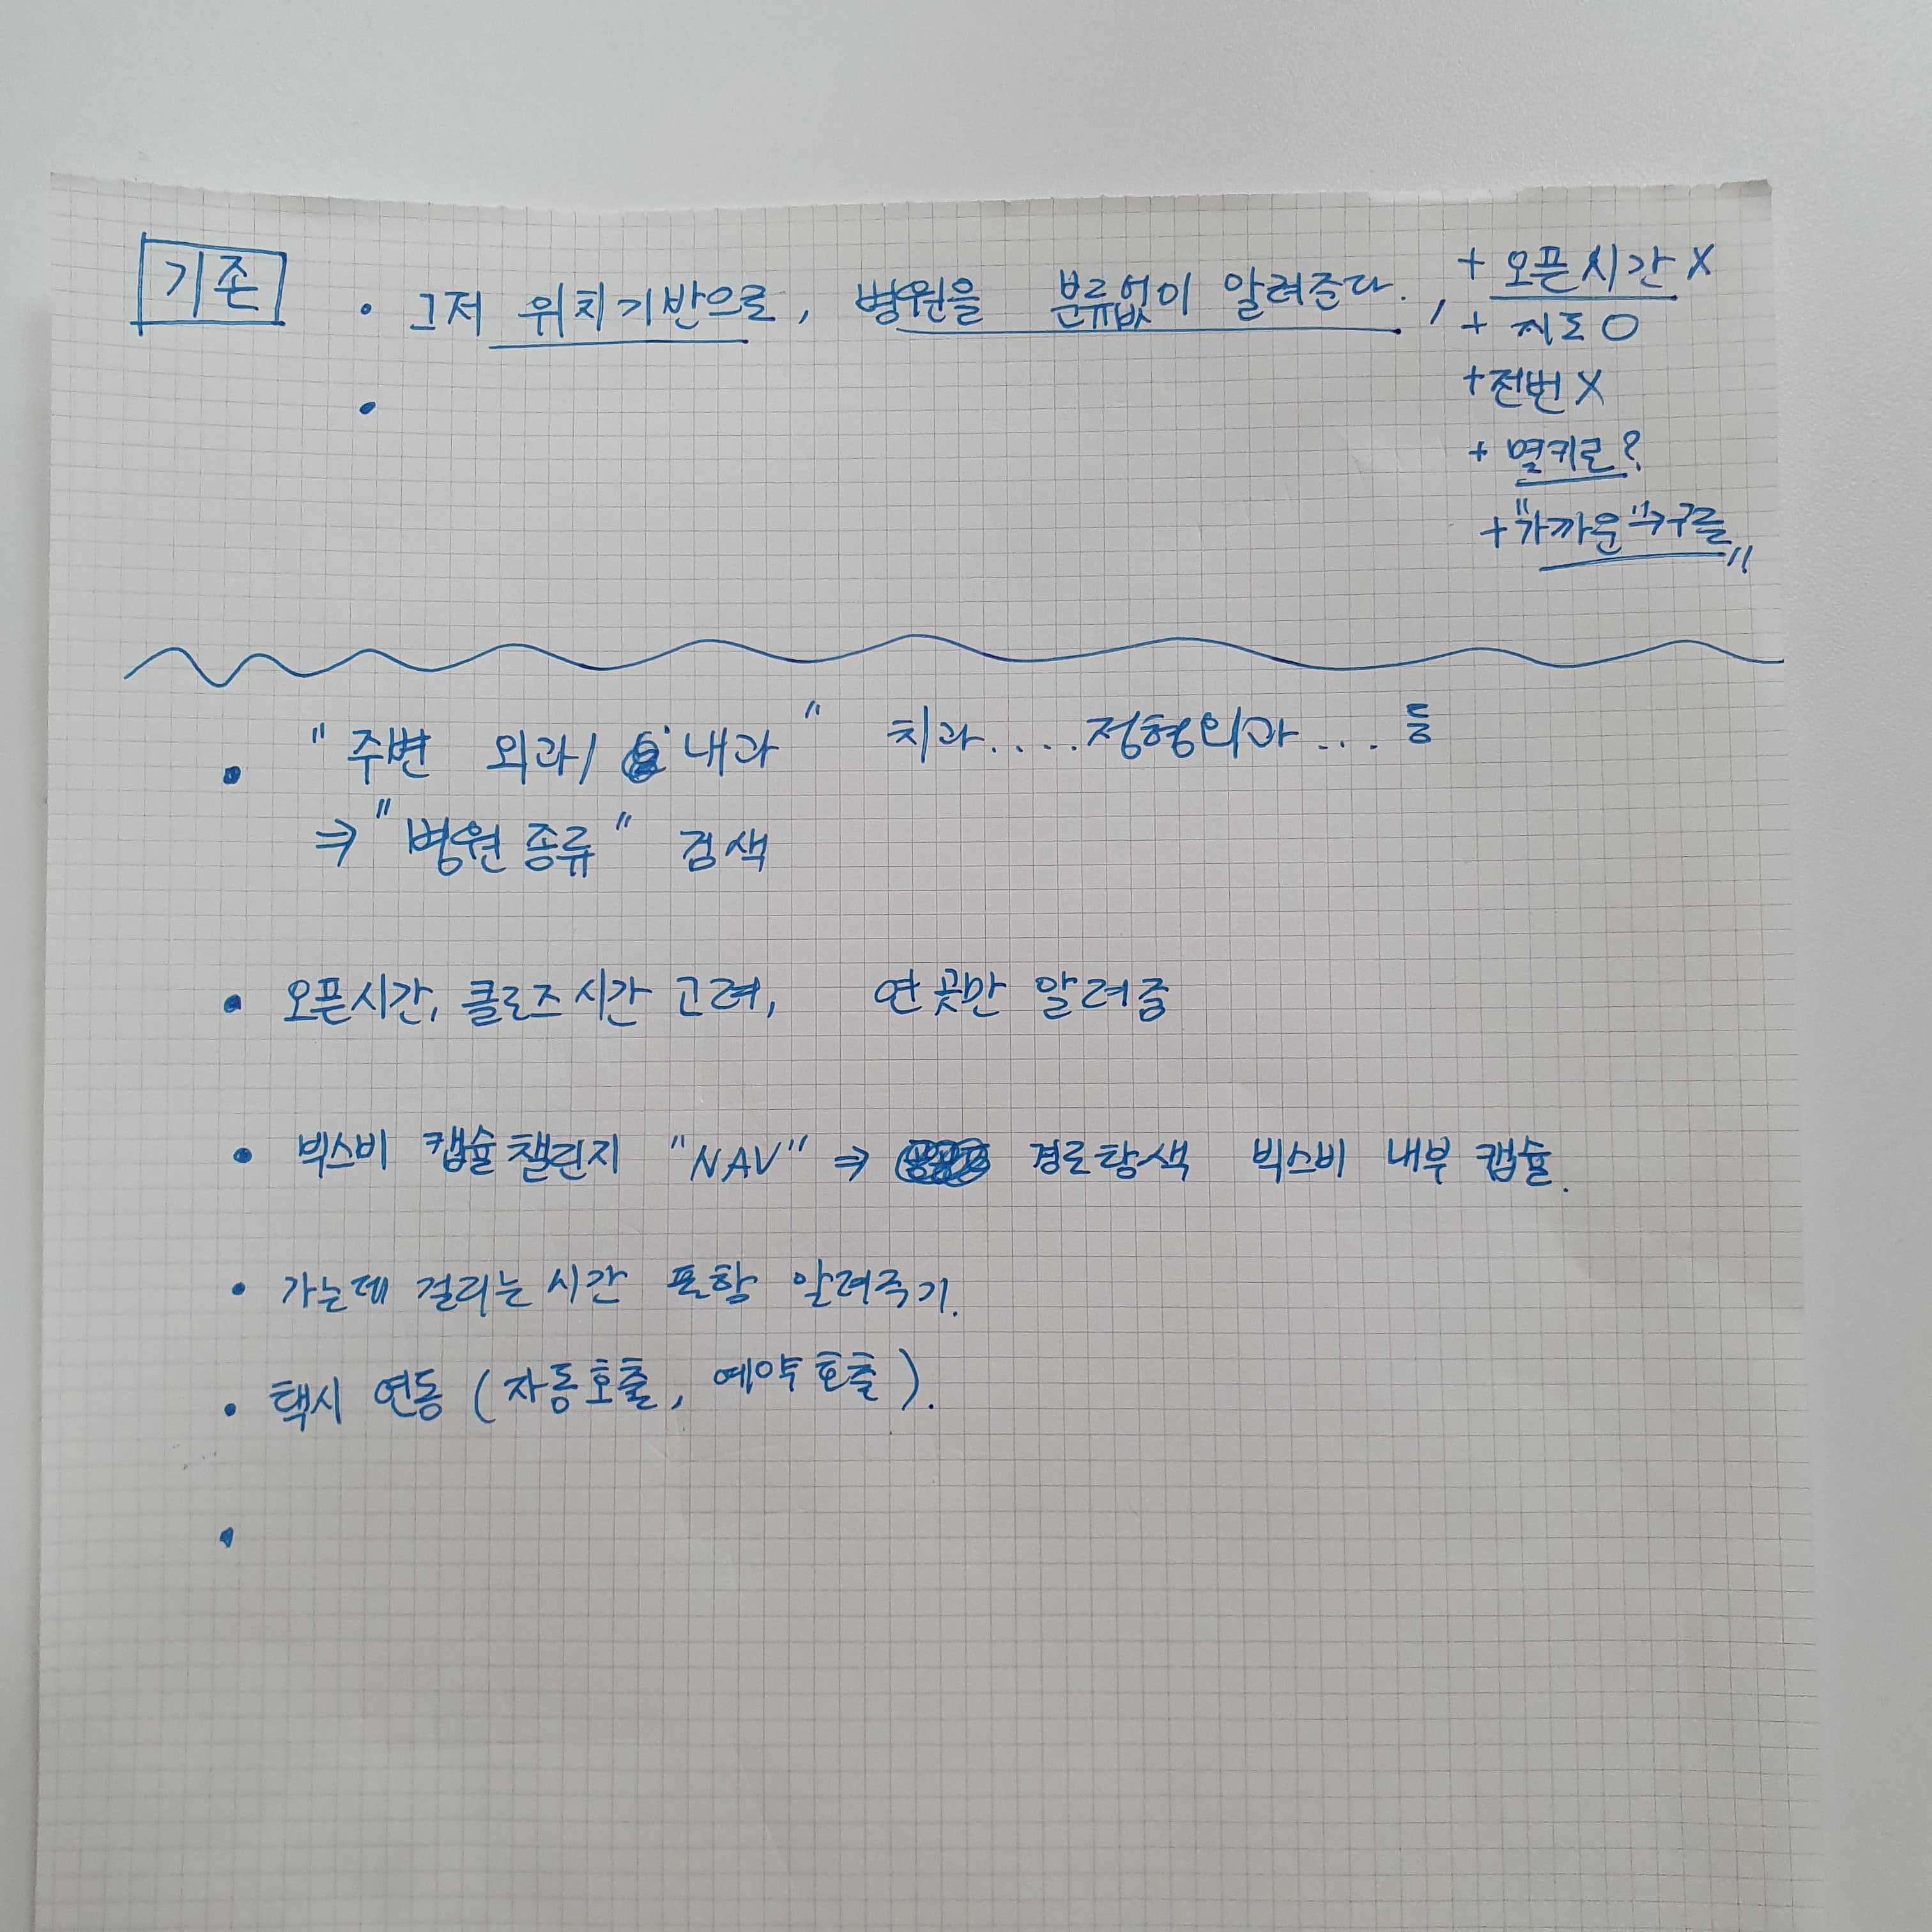 기존
• 그저 위치기반으로, 병원을 분류없이 알려준다. ,
+ 오픈시간 X
+ 지도 O
+ 전번 X
+ 몇키로?
+ "가까운"→구글
• "주변 외과/ 내과" 치과.... 정형외과.... 등
⇒ "병원종류" 검색
• 오픈시간, 클로즈시간 고려, 연곳만 알려줌
• 빅스비 캡슐챌린지 "NAV" ⇒ 경로탐색 빅스비 내부 캡슐.
• 가는데 걸리는 시간 포함 알려주기.
• 택시 연동 (자동호출, 예약호출).